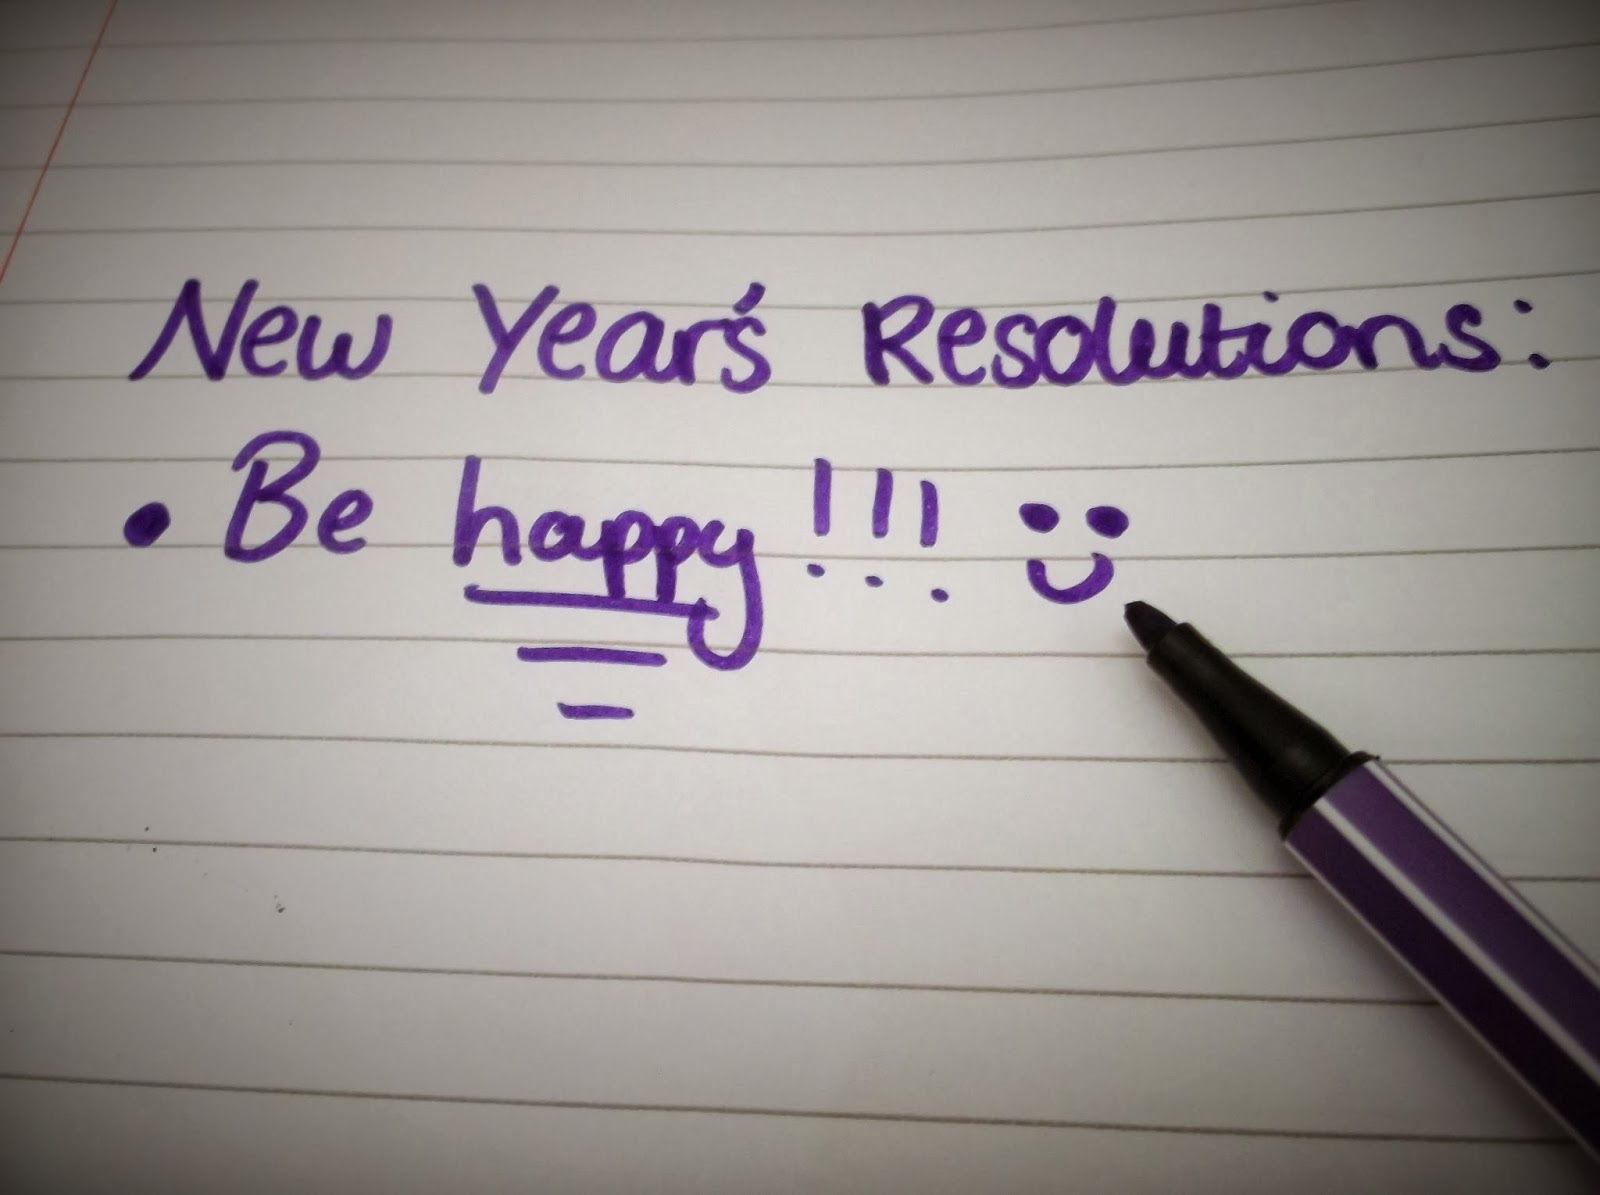 New Year's Resolutions:
• Be happy!!!